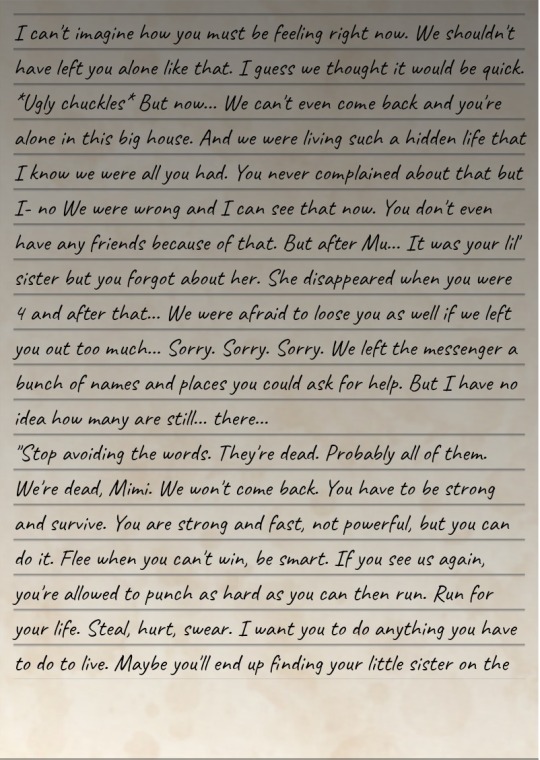 I can't imagine how you must be feeling right now. We shouldn't
have left you alone like that. I guess we thought it would be quick.
*Ugly chuckles* But now... We can't even come back and you're
alone in this big house. And we were living such a hidden life that
I know we were all you had. You never complained about that but
I- no We were wrong and I can see that now. You don't even
have any friends because of that. But after Mu... It was your lil'
sister but you forgot about her. She disappeared when you were
4 and after that... We were afraid to loose you as well if we left
you out too much... Sorry. Sorry. Sorry. We left the messenger a
bunch of names and places you could ask for help. But I have no
idea how many are still... there...
"Stop avoiding the words. They're dead. Probably all of them.
We're dead, Mimi. We won't come back. You have to be strong
and survive. You are strong and fast, not powerful, but you can
do it. Flee when you can't win, be smart. If you see us again,
you're allowed to punch as hard as you can then run. Run for
your life. Steal, hurt, swear. I want you to do anything you have
to do to live. Maybe you'll end up finding your little sister on the